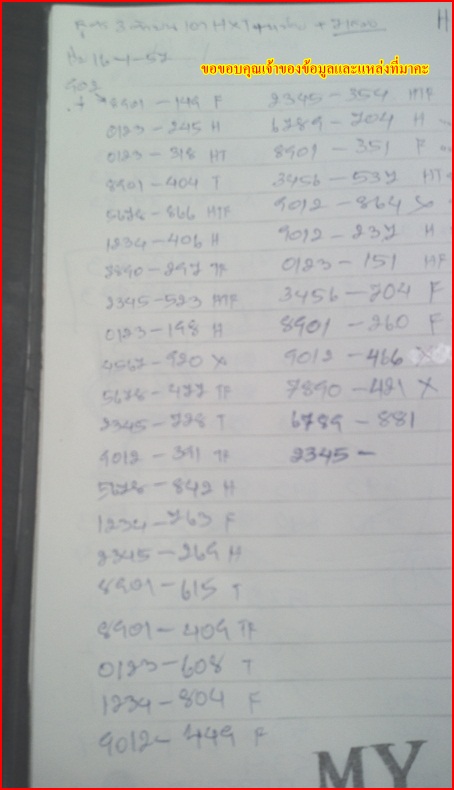 H
ขอขอบคุณเจ้าของข้อมูลและแหล่งที่มาคะ
16-1-57
902
8901-149 F
0123-245 H
0123-318 HT
8901-404 T
5678-866 HTF
1234-406 H
7890-297 TF
2345-523 HTF
0123-198 H
4567-920 X
5678-477 TF
2345-728 T
9012-391 TF
5678-842 H
1234-763 F
2345-269 H
8901-615 T
8901-409 TF
0123-608 T
1234-804 F
9012-449 F
2345-354 HTF
6789-704 H
8901-351 F
3456-537 HT
9012-864 X
9012-237 H
0123-151 HF
3456-704 F
8901-260 F
9012-466 X
7890-421 X
6789-881
2345-
MY